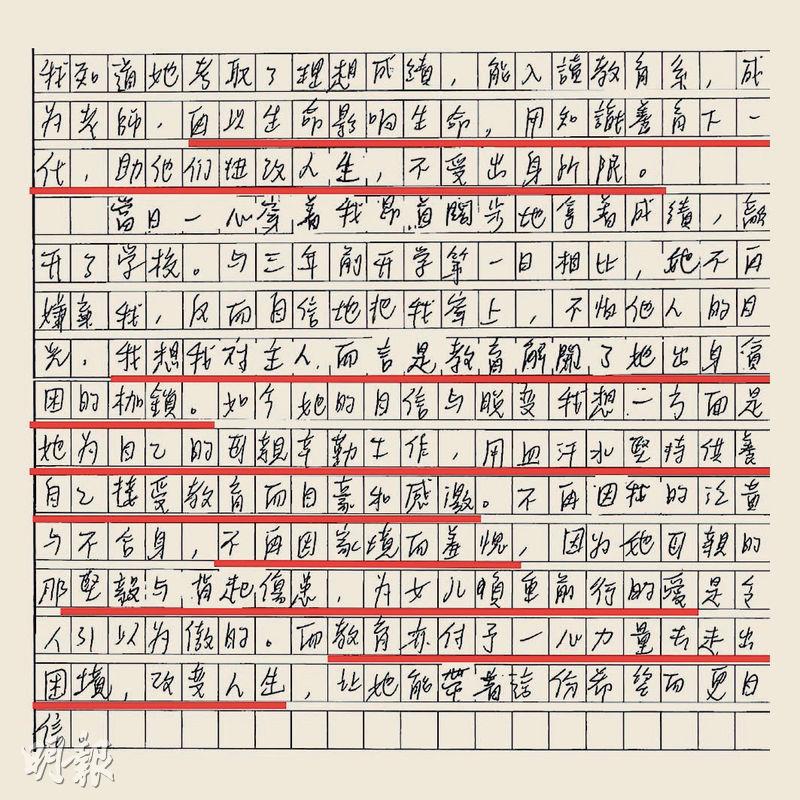 我知道她考取了理想成績，能入讀教育系，成
为老師，再以生命影响生命，用知識養育下一
代，助他们扭改人生，不受出身所限。
當日一心穿着我昂首闊步地拿着成績，離
开了学校。与三年前开学第一日相比，她不再
嫌棄我，反而自信地把我穿上，不怕他人的目
光。我想我对主人而言是教育解開了她出身貧
困的枷鎖。如今她的自信与脱变我想一方面是
她为自己的母親辛勤工作，用血汗水堅持供養
自己接受教育而自豪和感激。不再因我的泛黄
与不合身，不再因家境而羞愧，因为她母親的
那堅毅与背起傷患，为女儿負重前行的愛是令
人引以为傲的。而教育亦付予一心力量去走出
困境，改变人生，让她能帶着這份希望而更自
信
明報